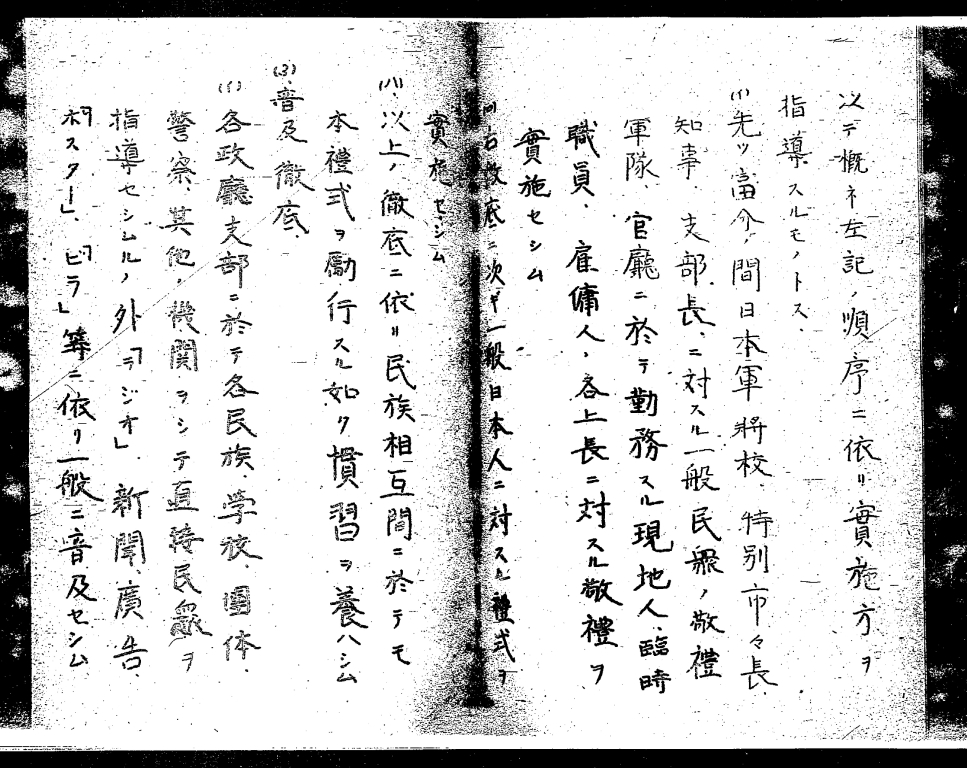 以テ概ネ左記ノ順序ニ依リ實施方ヲ
指導スルモノトス、
(イ)先ツ當分ノ間日本軍將校、特別市々長、
知事、支部長、ニ対スル一般民衆ノ敬禮
軍隊、官廳ニ於テ勤務スル現地人、臨時
職員、雇傭人、各上長ニ対スル敬禮ヲ
實施セシム
(ロ)右徹底ニ次ギ一般日本人ニ対スル禮式ヲ
實施セシム
(ハ)、以上ノ徹底ニ依リ民族相互間ニ於テモ
本禮式ヲ勵行スル如ク慣習ヲ養ハシム
(3)、普及徹底、
(イ)各政廳支部ニ於テ各民族、学校、團体、
警察、其他ノ機関ヲシテ直接民衆ヲ
指導セシムルノ外「ラジオ」新聞、廣告、
「ポスター」、「ビラ」等ニ依リ一般ニ普及セシム